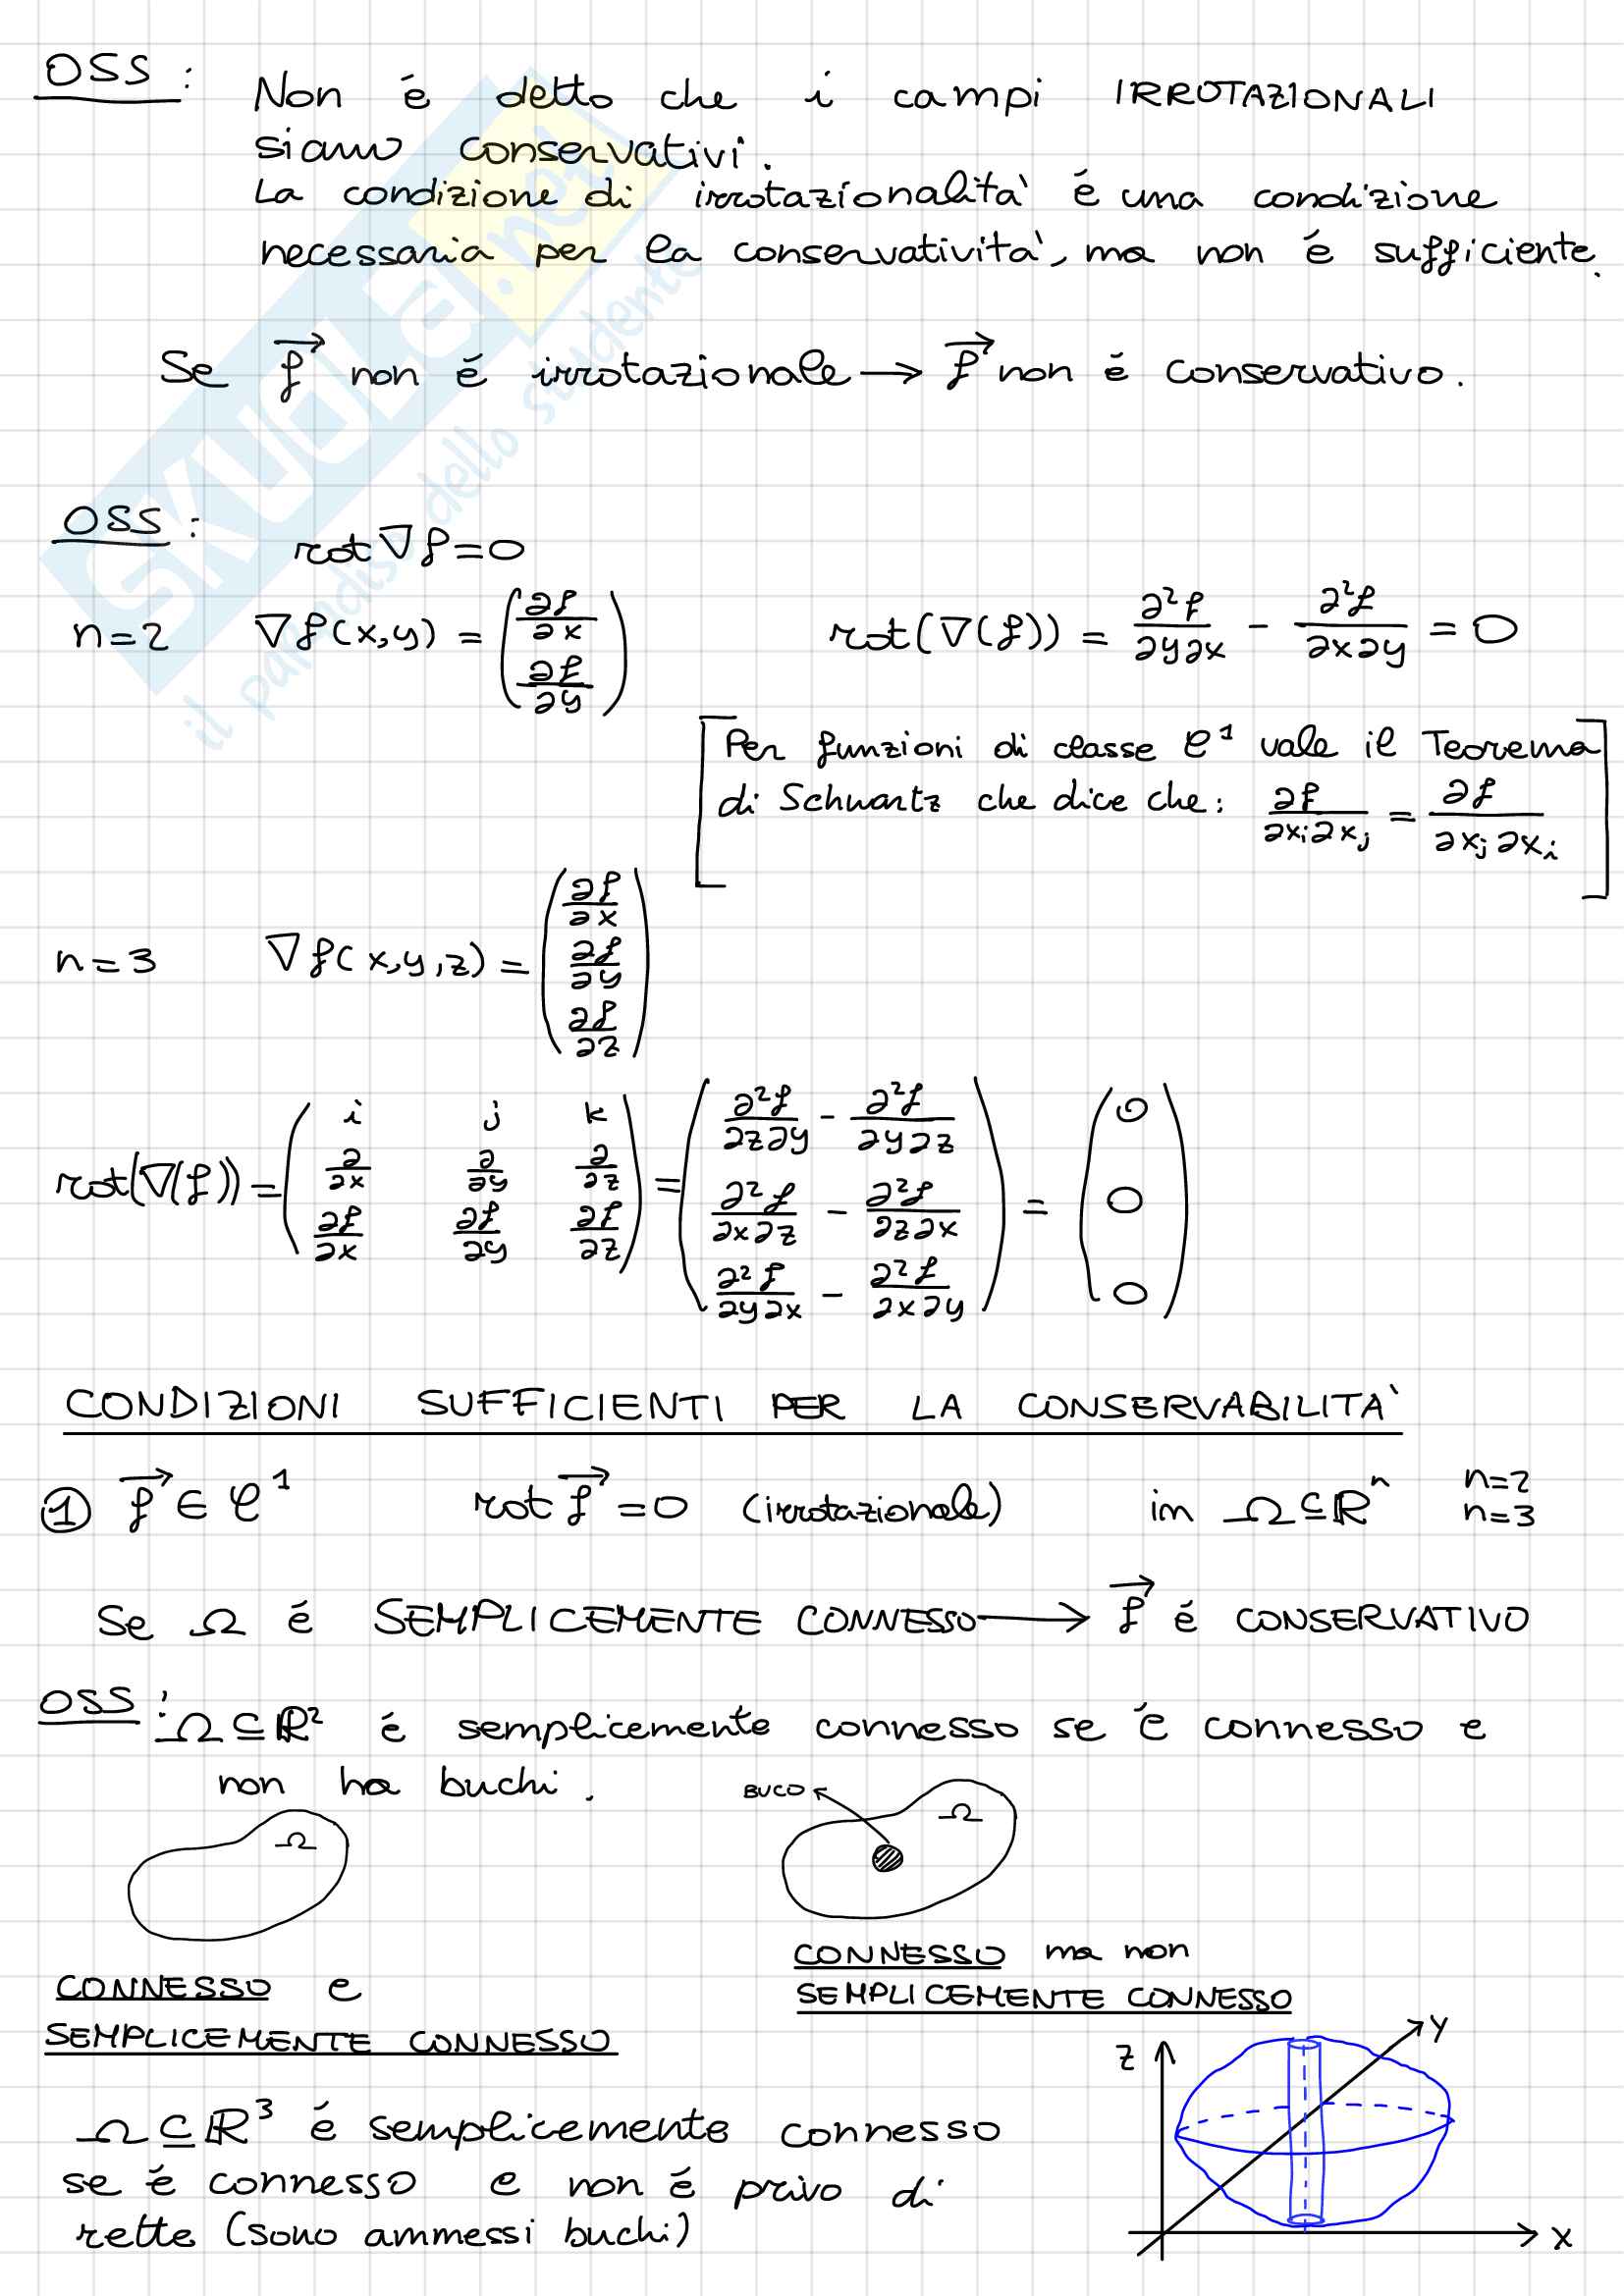 OSS : Non é detto che i campi IRROTAZIONALI
siano conservativi.
La condizione di irrotazionalità é una condizione
necessaria per la conservatività, ma non é sufficiente.
Se f⃗ non é irrotazionale → f⃗ non é conservativo.
OSS : rot ∇f = 0
n=2 ∇f(x,y) = (∂f/∂x, ∂f/∂y) rot(∇(f)) = ∂²f/∂y∂x - ∂²f/∂x∂y = 0
[Per funzioni di classe C¹ vale il Teorema
di Schwartz che dice che: ∂f/∂xi∂xj = ∂f/∂xj∂xi]
n=3 ∇f(x,y,z) = (∂f/∂x, ∂f/∂y, ∂f/∂z)
rot(∇(f)) = (i j k; ∂/∂x ∂/∂y ∂/∂z; ∂f/∂x ∂f/∂y ∂f/∂z) = (∂²f/∂z∂y - ∂²f/∂y∂z; ∂²f/∂x∂z - ∂²f/∂z∂x; ∂²f/∂y∂x - ∂²f/∂x∂y) = (0; 0; 0)
CONDIZIONI SUFFICIENTI PER LA CONSERVABILITA'
① f⃗ ∈ C¹ rot f⃗ = 0 (irrotazionale) in Ω ⊆ ℝⁿ n=2 n=3
Se Ω é SEMPLICEMENTE CONNESSO → f⃗ é CONSERVATIVO
OSS : Ω ⊆ ℝ² é semplicemente connesso se é connesso e
non ha buchi.
Ω
BUCO
Ω
CONNESSO e
SEMPLICEMENTE CONNESSO
CONNESSO ma non
SEMPLICEMENTE CONNESSO
Ω ⊆ ℝ³ é semplicemente connesso
se é connesso e non é privo di
rette (sono ammessi buchi)
z
y
x
SKUOLA.net
il paradiso dello studente